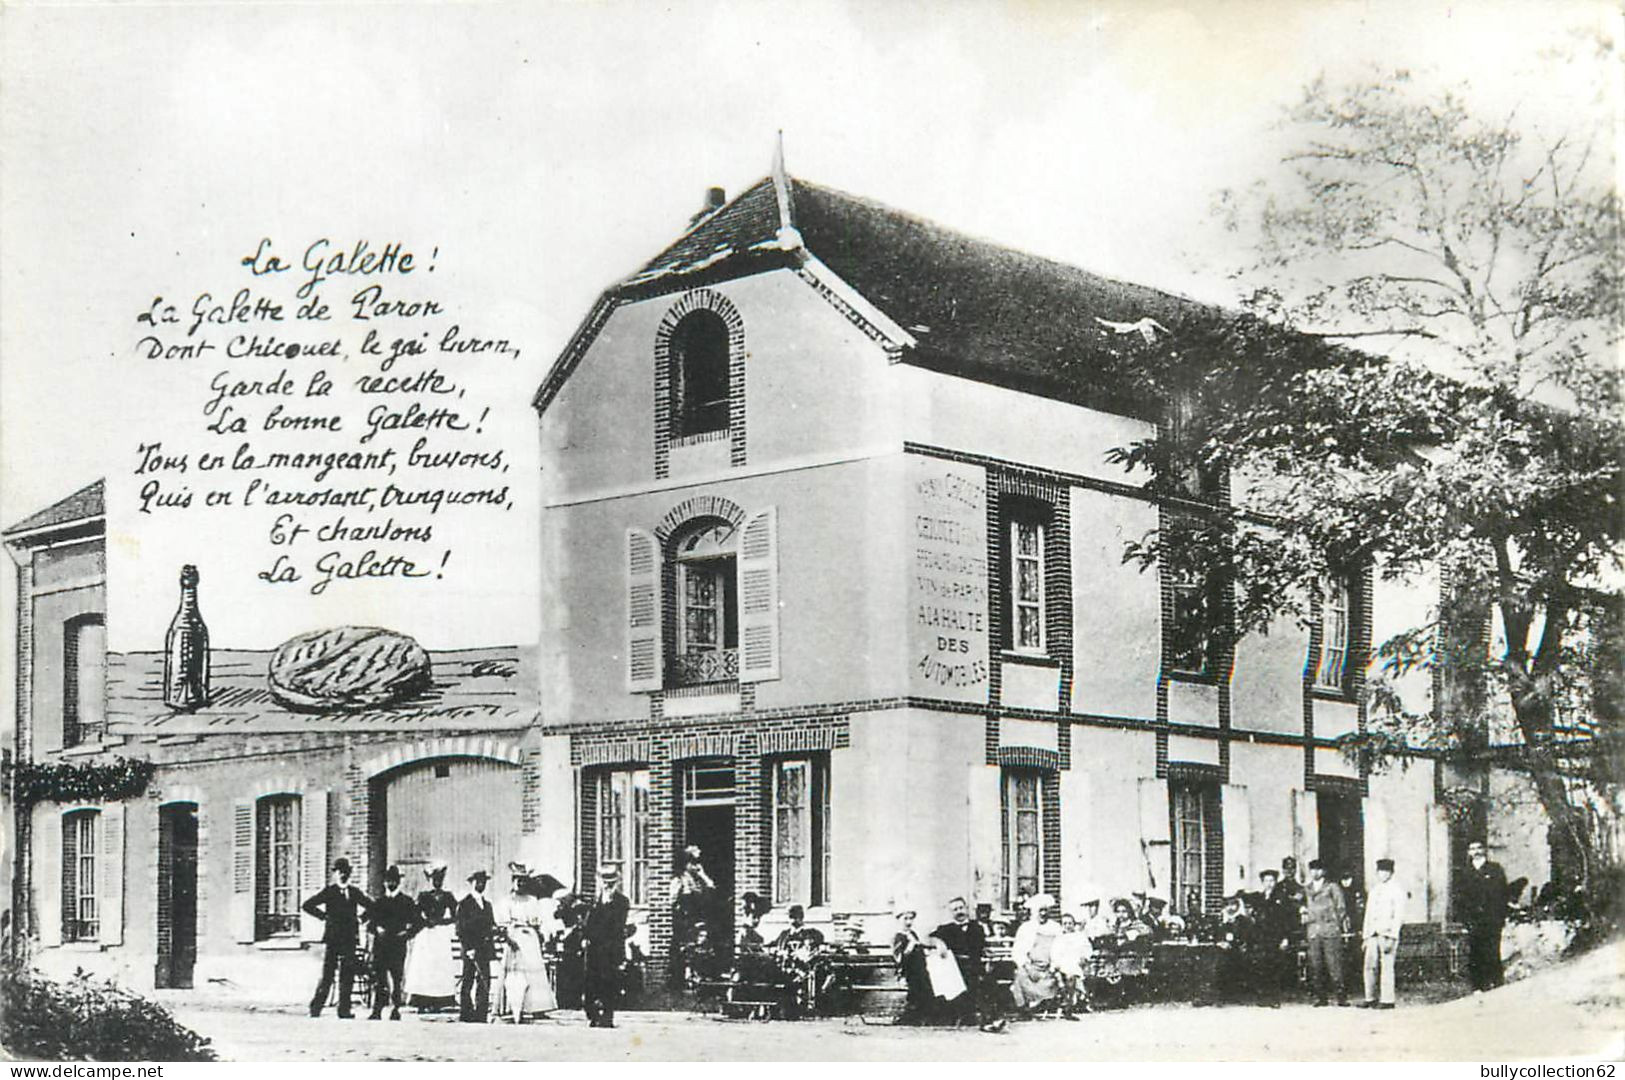 La Galette !
La Galette de Paron
Dont Chicouet, le gai luron,
Garde la recette,
La bonne Galette !
Tous en la mangeant, buvons,
Puis en l'arrosant, trinquons,
Et chantons
La Galette !
CHICOUET
VIN de PARON
A LA HALTE
DES
AUTOMOBILES
www.delcampe.net
bullycollection62